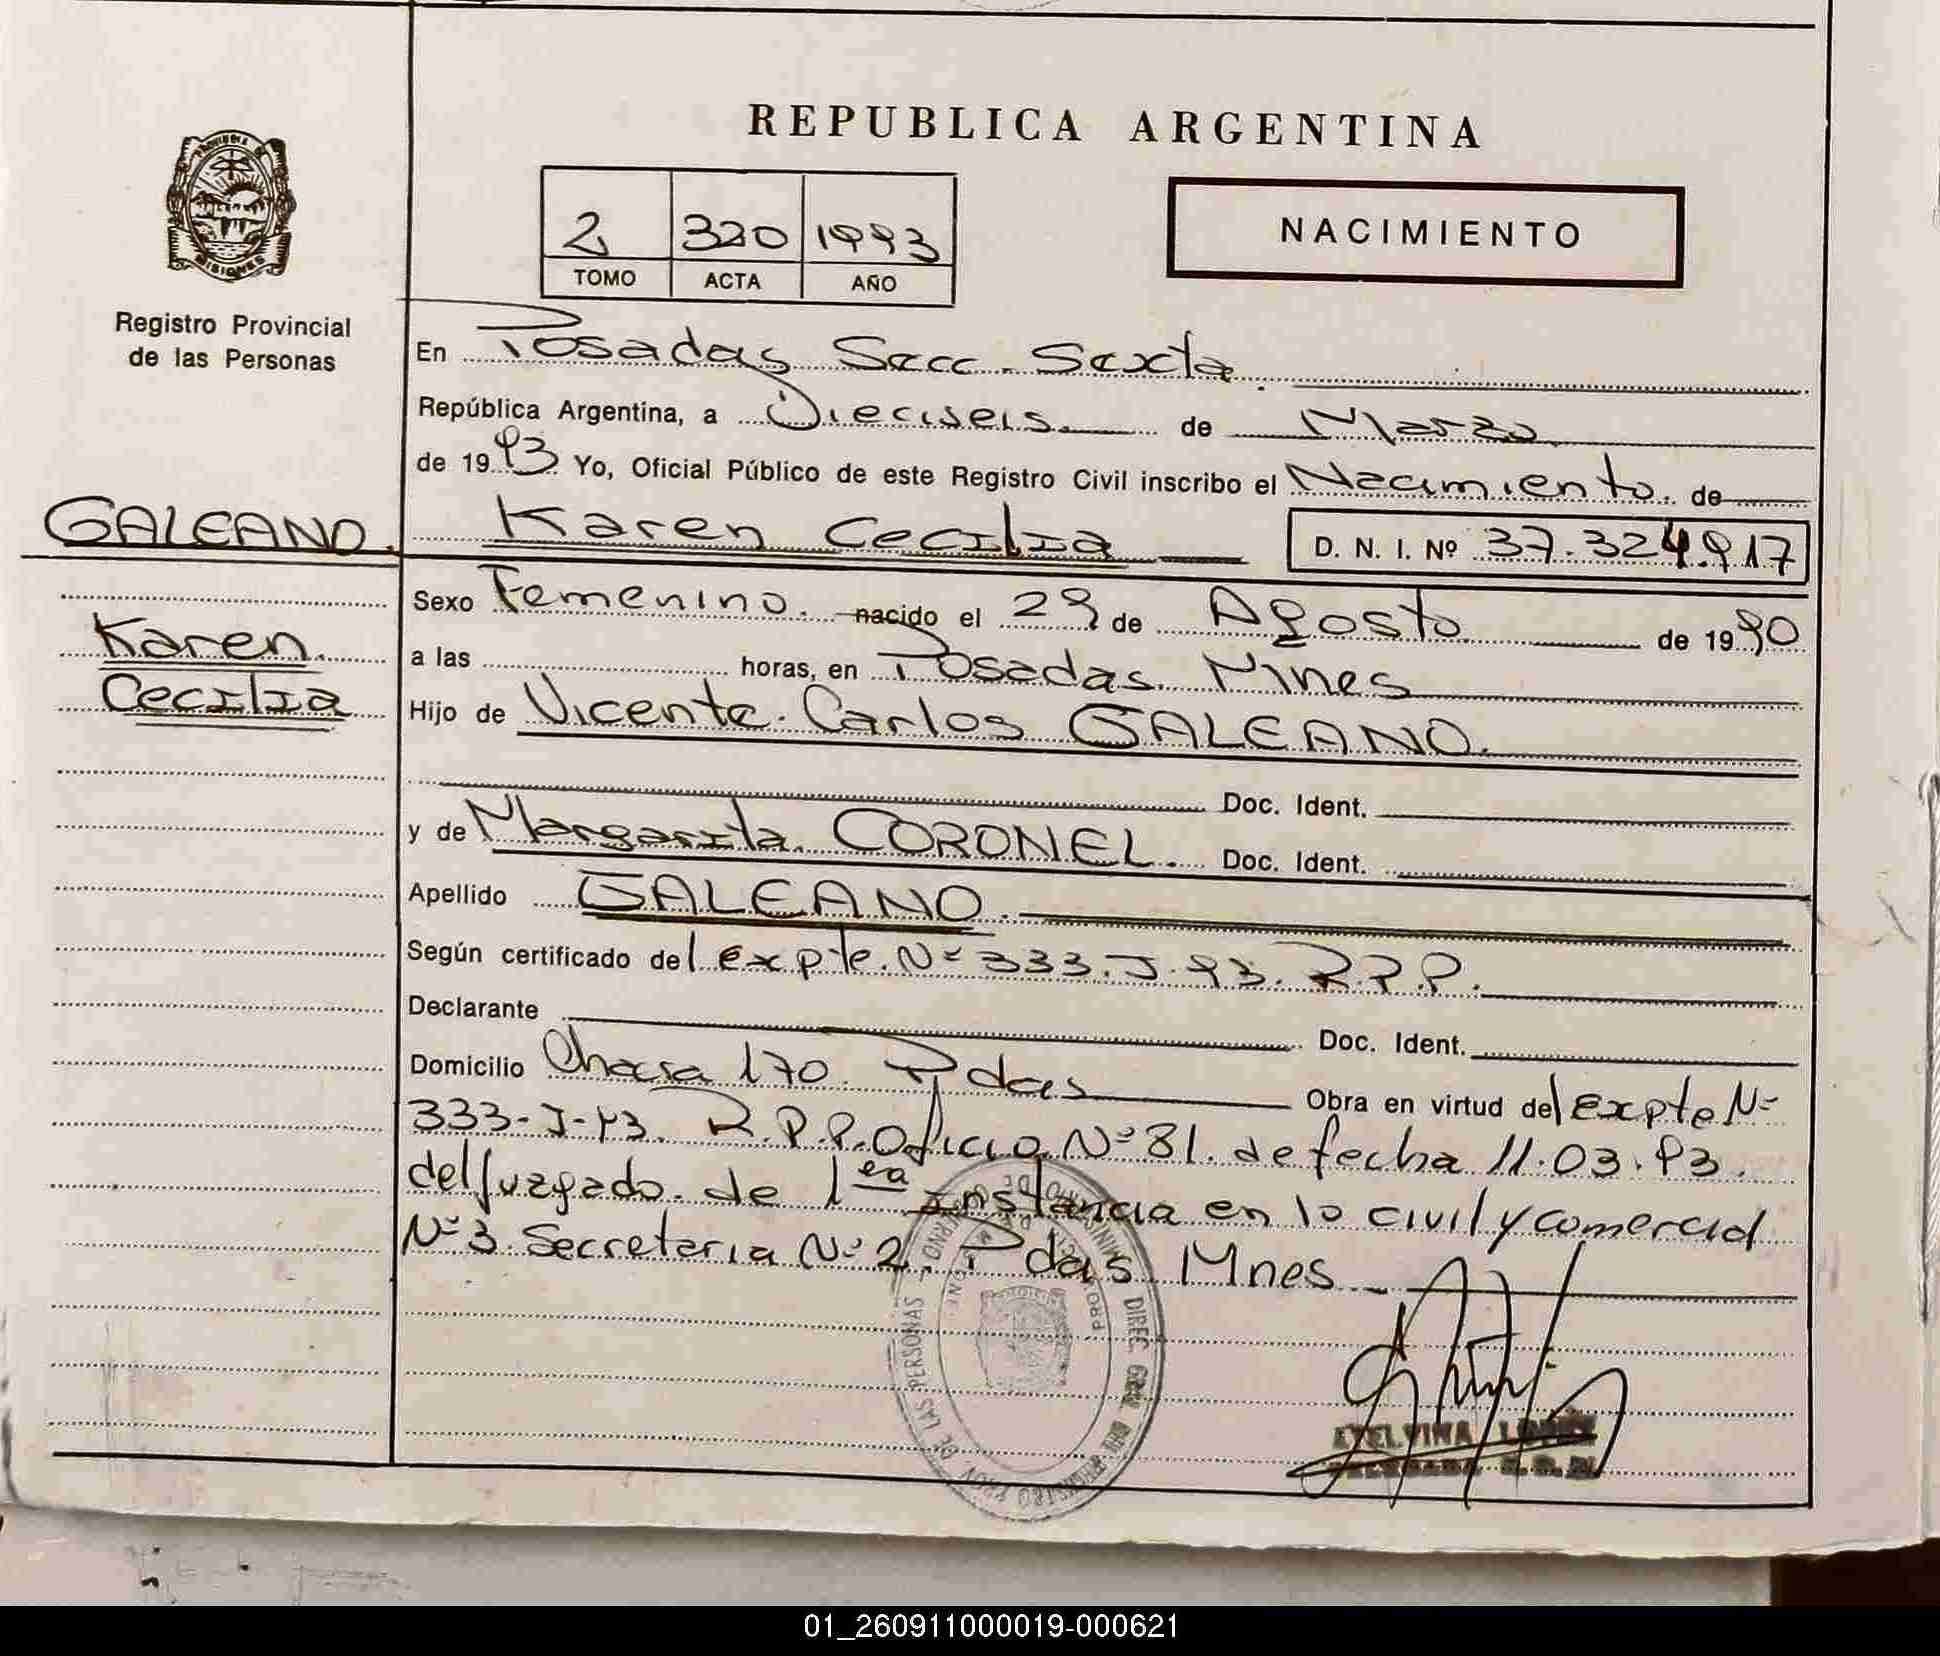 REPUBLICA ARGENTINA
PROVINCIA DE
MISIONES
Registro Provincial
de las Personas
2 320 1993
TOMO ACTA AÑO
NACIMIENTO
En Posadas Secc. Sexta.
República Argentina, a Dieciseis de Marzo
de 1993 Yo, Oficial Público de este Registro Civil inscribo el Nacimiento. de
GALEANO. Karen Cecilia D. N. I. Nº 37.324.917
Sexo Femenino. nacido el 29 de Agosto de 1990
Karen.
a las horas, en Posadas. Mnes
Cecilia
Hijo de Vicente. Carlos GALEANO.
Doc. Ident.
y de Margarita. CORONEL. Doc. Ident.
Apellido GALEANO.
Según certificado del expte. Nº 333. J. 93. R.P.P.
Declarante Doc. Ident.
Domicilio Chacra 170. Pdas Obra en virtud del expte Nº
333-J-93. R.P.P. Oficio Nº 81. de fecha 11.03.93.
del Juzgado. de 1era instancia en lo civil y comercial
Nº 3. Secretaria Nº 2. Pdas. Mnes
ETELVINA
01_260911000019-000621